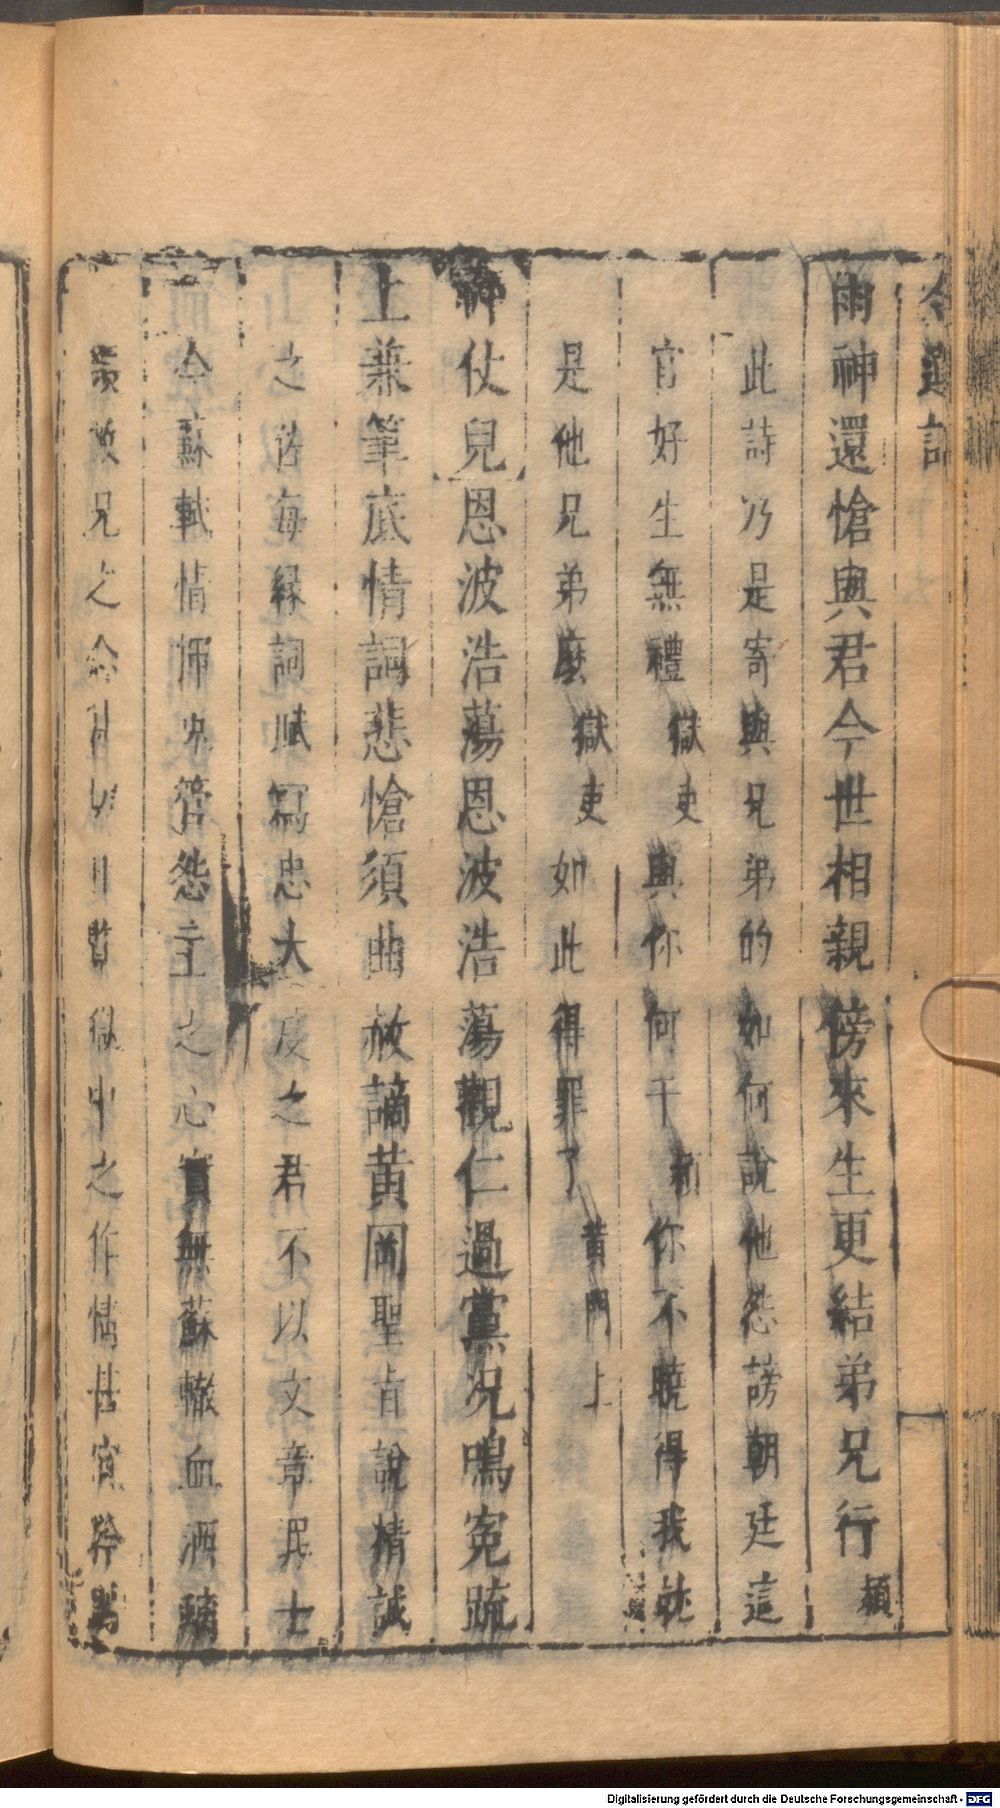 雨神還愴與君今世相親傍來生更結弟兄行穎
此詩乃是寄與兄弟的如何說他怨謗朝廷這
官好生無禮獄吏與你何干穎你不曉得我就
是他兄弟麼獄吏如此得罪了黄門上
神仗兒恩波浩蕩恩波浩蕩觀仁過黨況鳴寃䟽
上兼筆底情詞悲愴須曲赦謫黄岡聖旨說精誠
之洽每緣詞賦寫忠大度之君不以文章罪士
今蘇軾情 管怨主之心實無蘇轍血洒
兄之命 獄中之作情甚寃
Digitalisierung gefördert durch die Deutsche Forschungsgemeinschaft - DFG